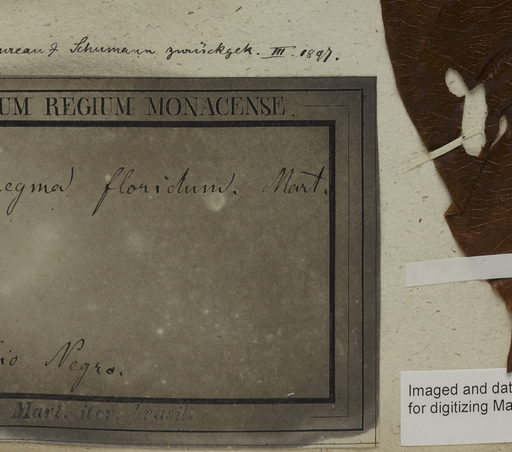 ureau & Schumann zurückgek. III. 1897.
UM REGIUM MONACENSE.
egma floridum. Mart.
io Negro.
Mart. iter. brasil.
Imaged and dat
for digitizing Ma